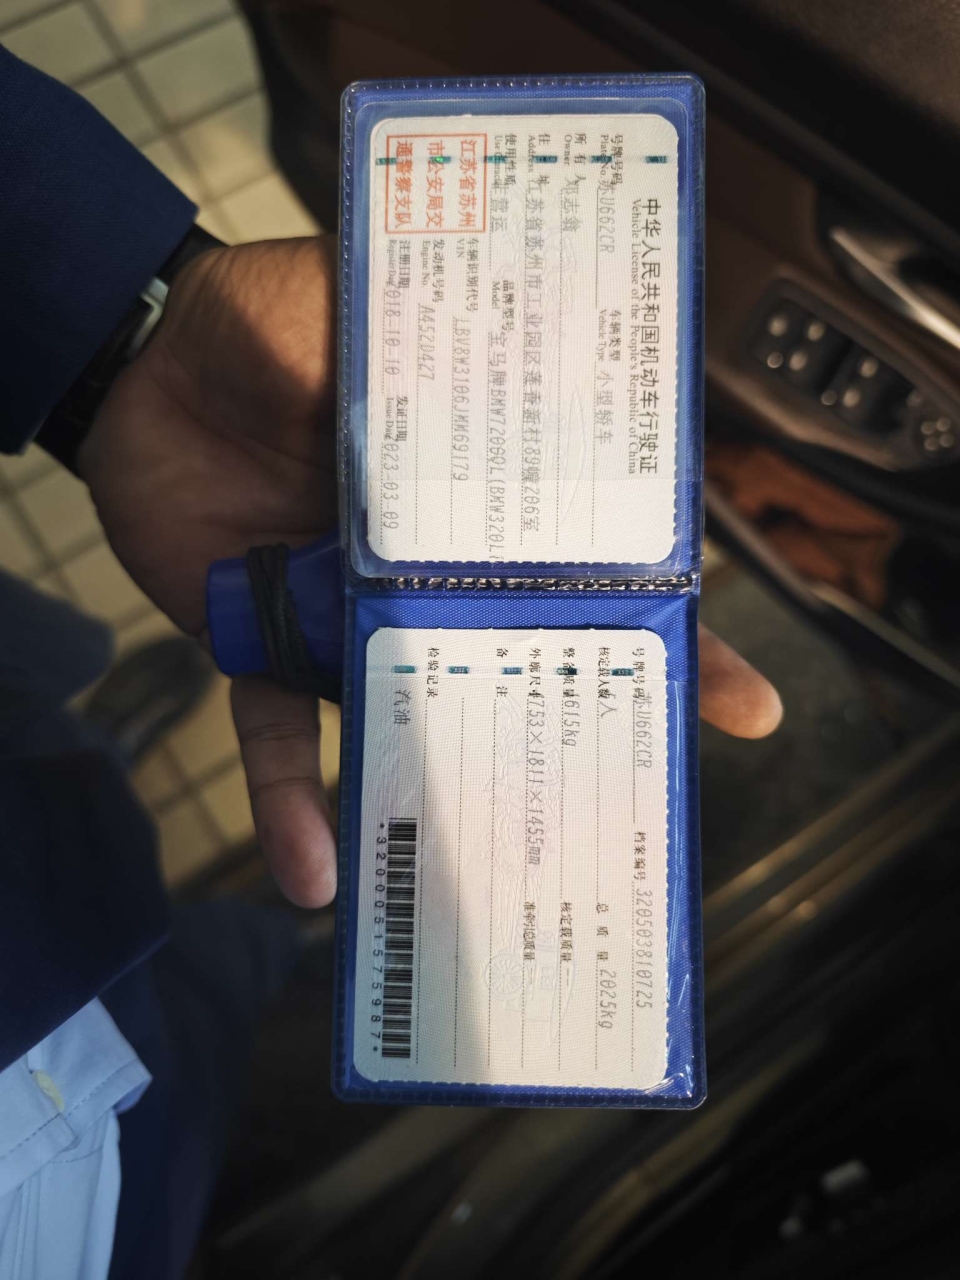 中华人民共和国机动车行驶证
Vehicle License of the People's Republic of China
号牌号码 苏U662CR 车辆类型 小型轿车
Plate No. Vehicle Type
所有人 志翁
Owner
住址 江苏省苏州市工业园区莲香新村89幢206室
Address
使用性质 非营运 品牌型号 宝马牌BMW7200QL(BMW320Li
Use Character Model
江苏省苏州
市公安局交
通警察支队
车辆识别代号 LBV8W3106JMM69179
VIN
发动机号码 A452D427
Engine No.
注册日期 2018-10-10 发证日期 2023-03-09
Register Date Issue Date
号牌号码 苏U662CR 档案编号 320503810725
核定载人数 5人 总质量 2025kg
整备质量 1615kg 核定载质量 --
外廓尺寸 4753×1811×1455mm 准牵引总质量 --
备注
检验记录
汽油
*3200051575987*